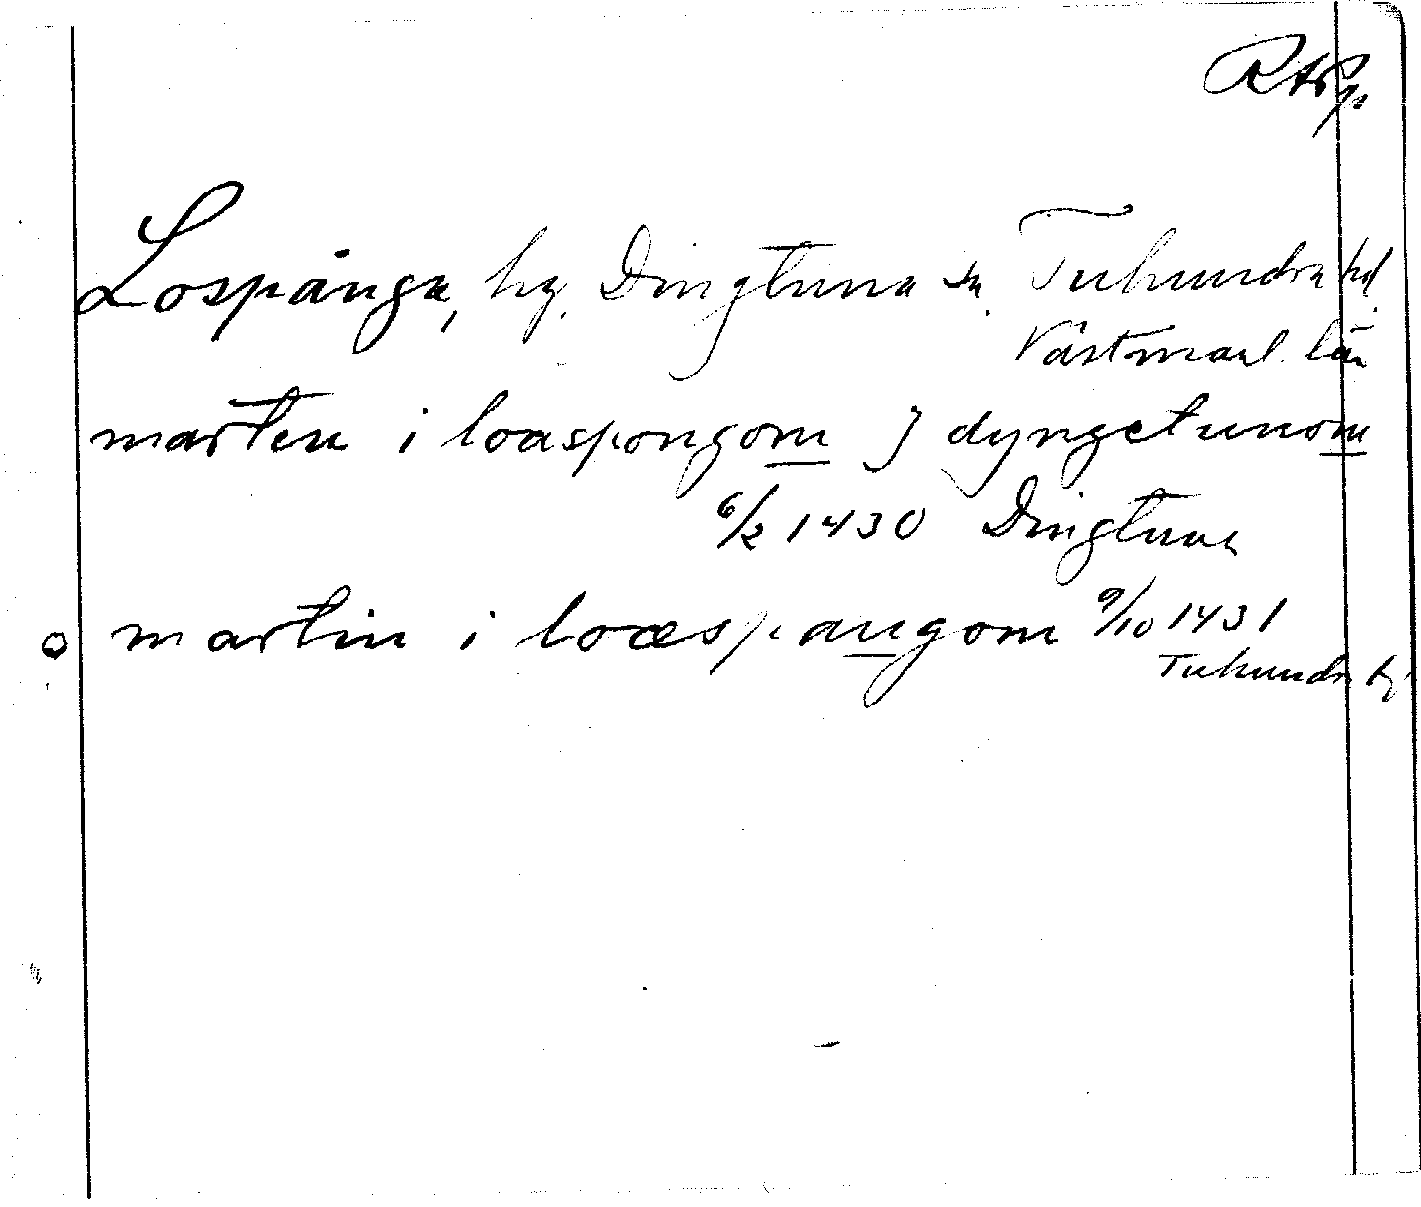 Lospånga, by. Dingtuna sn. Tuhundra hd.
Västmanl. län
marten i loaspongom j dyngetunom
6/2 1430 Dingtuna
martin i loæspangom 9/10 1431
Tuhundra